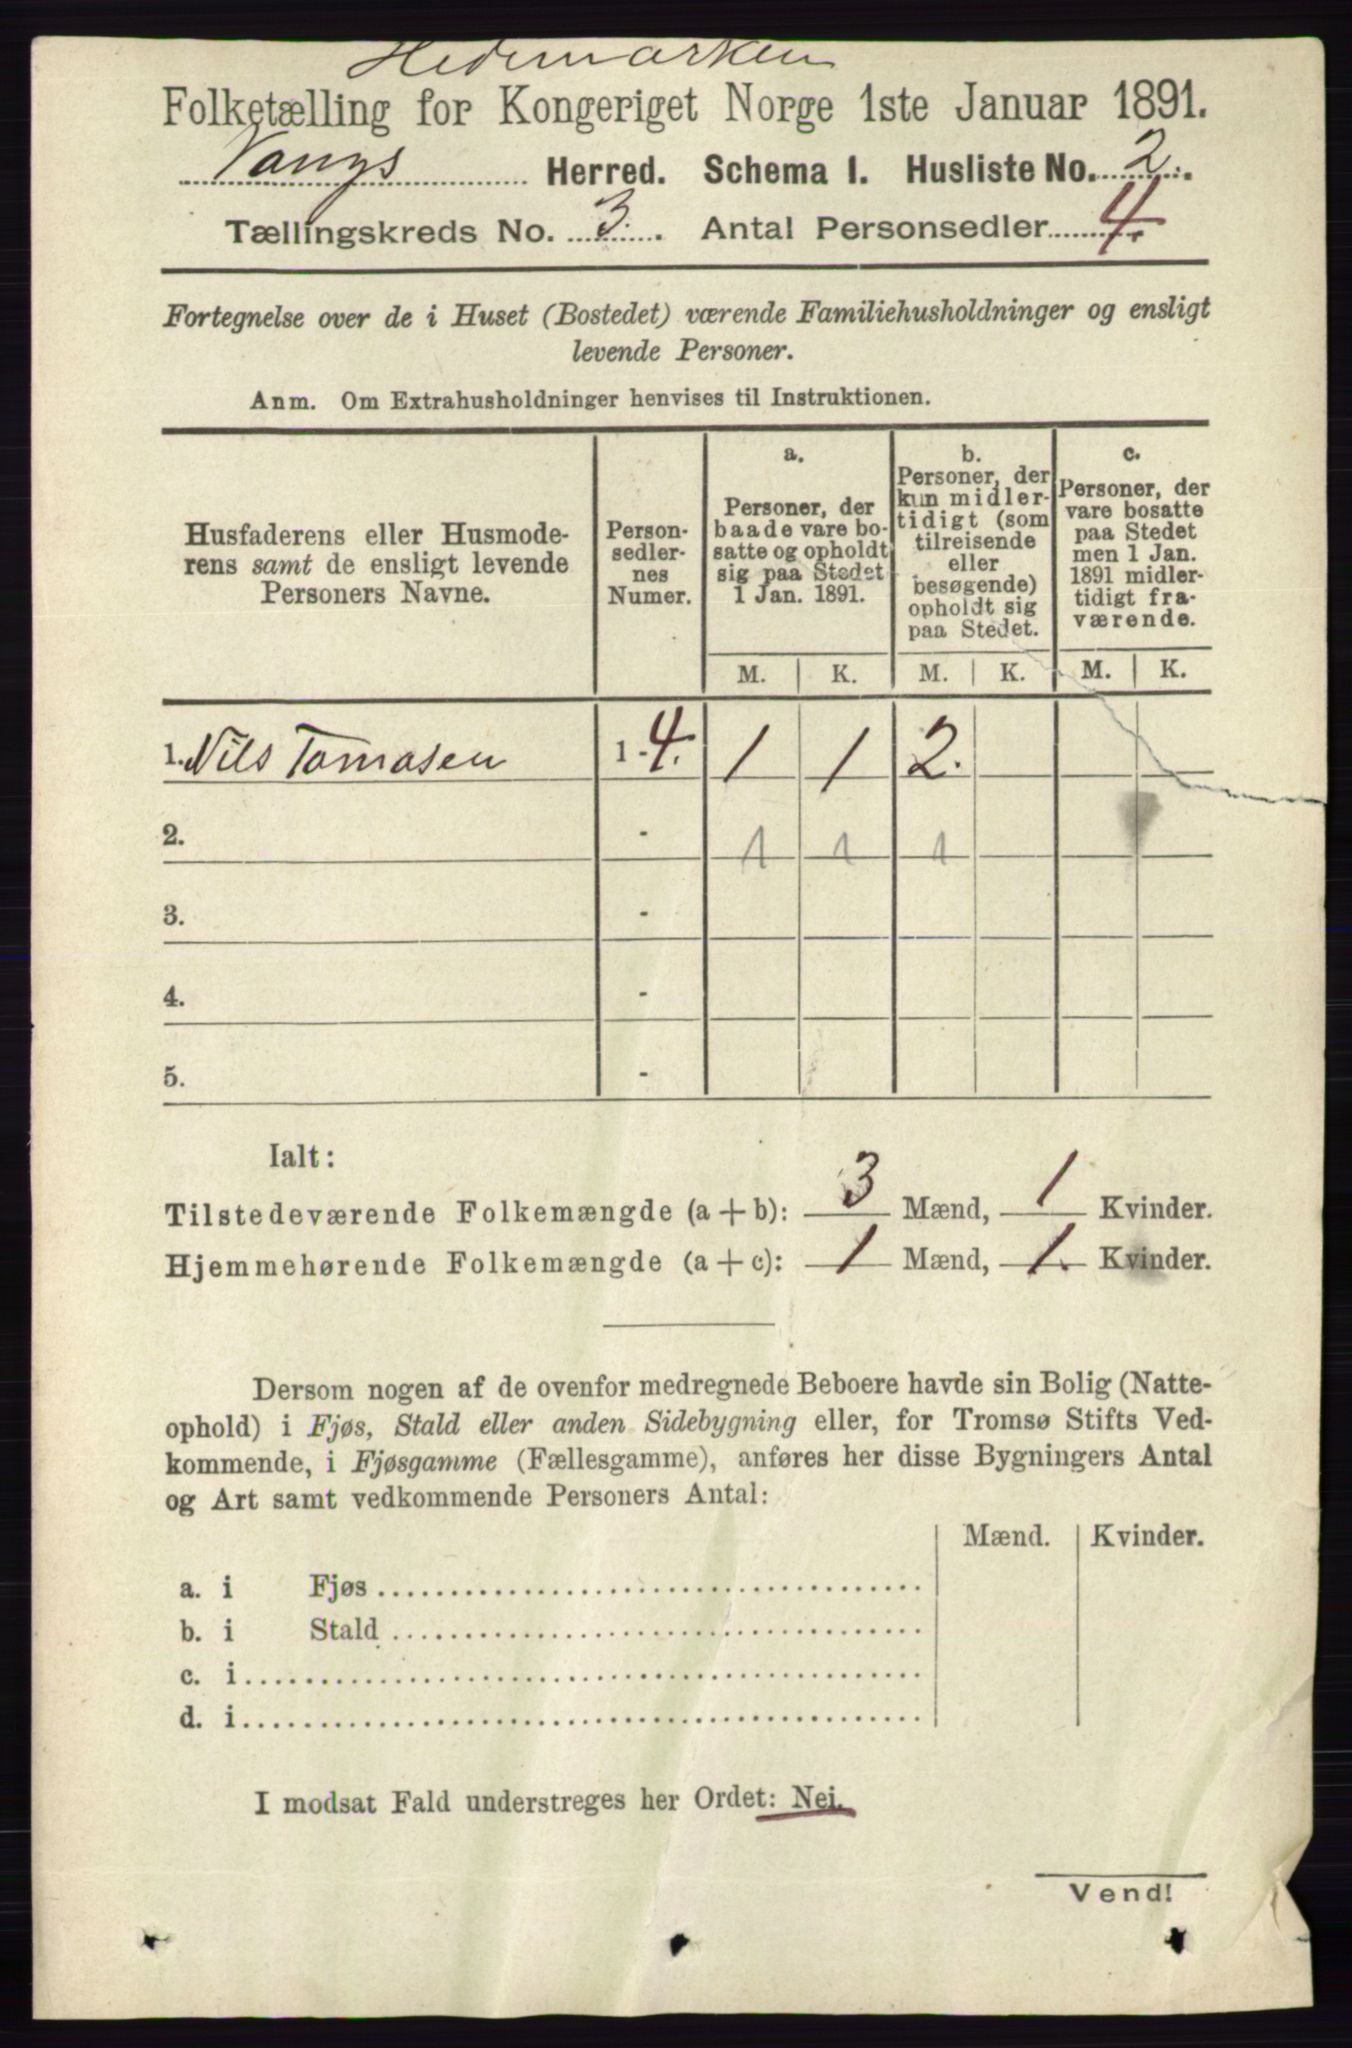 Hedemarken
Folketælling for Kongeriget Norge 1ste Januar 1891.
Vangs Herred. Schema I. Husliste No. 2.
Tællingskreds No. 3. Antal Personsedler 4.
Fortegnelse over de i Huset (Bostedet) værende Familiehusholdninger og ensligt
levende Personer.
Anm. Om Extrahusholdninger henvises til Instruktionen.
Husfaderens eller Husmode-
rens samt de ensligt levende
Personers Navne.
Person-
sedler-
nes
Numer.
a.
Personer, der
baade vare bo-
satte og opholdt
sig paa Stedet
1 Jan. 1891.
b.
Personer, der
kun midler-
tidigt (som
tilreisende
eller
besøgende)
opholdt sig
paa Stedet.
c.
Personer, der
vare bosatte
paa Stedet
men 1 Jan.
1891 midler-
tidigt fra-
værende.
M. K. M. K. M. K.
1. Nils Tomasen 1 - 4. 1 1 2.
2. - 1 1 1
3. -
4. -
5. -
Ialt:
Tilstedeværende Folkemængde (a + b): 3 Mænd, 1 Kvinder.
Hjemmehørende Folkemængde (a + c): 1 Mænd, 1. Kvinder.
Dersom nogen af de ovenfor medregnede Beboere havde sin Bolig (Natte-
ophold) i Fjøs, Stald eller anden Sidebygning eller, for Tromsø Stifts Ved-
kommende, i Fjøsgamme (Fællesgamme), anføres her disse Bygningers Antal
og Art samt vedkommende Personers Antal:
Mænd. Kvinder.
a. i Fjøs
b. i Stald
c. i
d. i
I modsat Fald understreges her Ordet: Nei.
Vend!